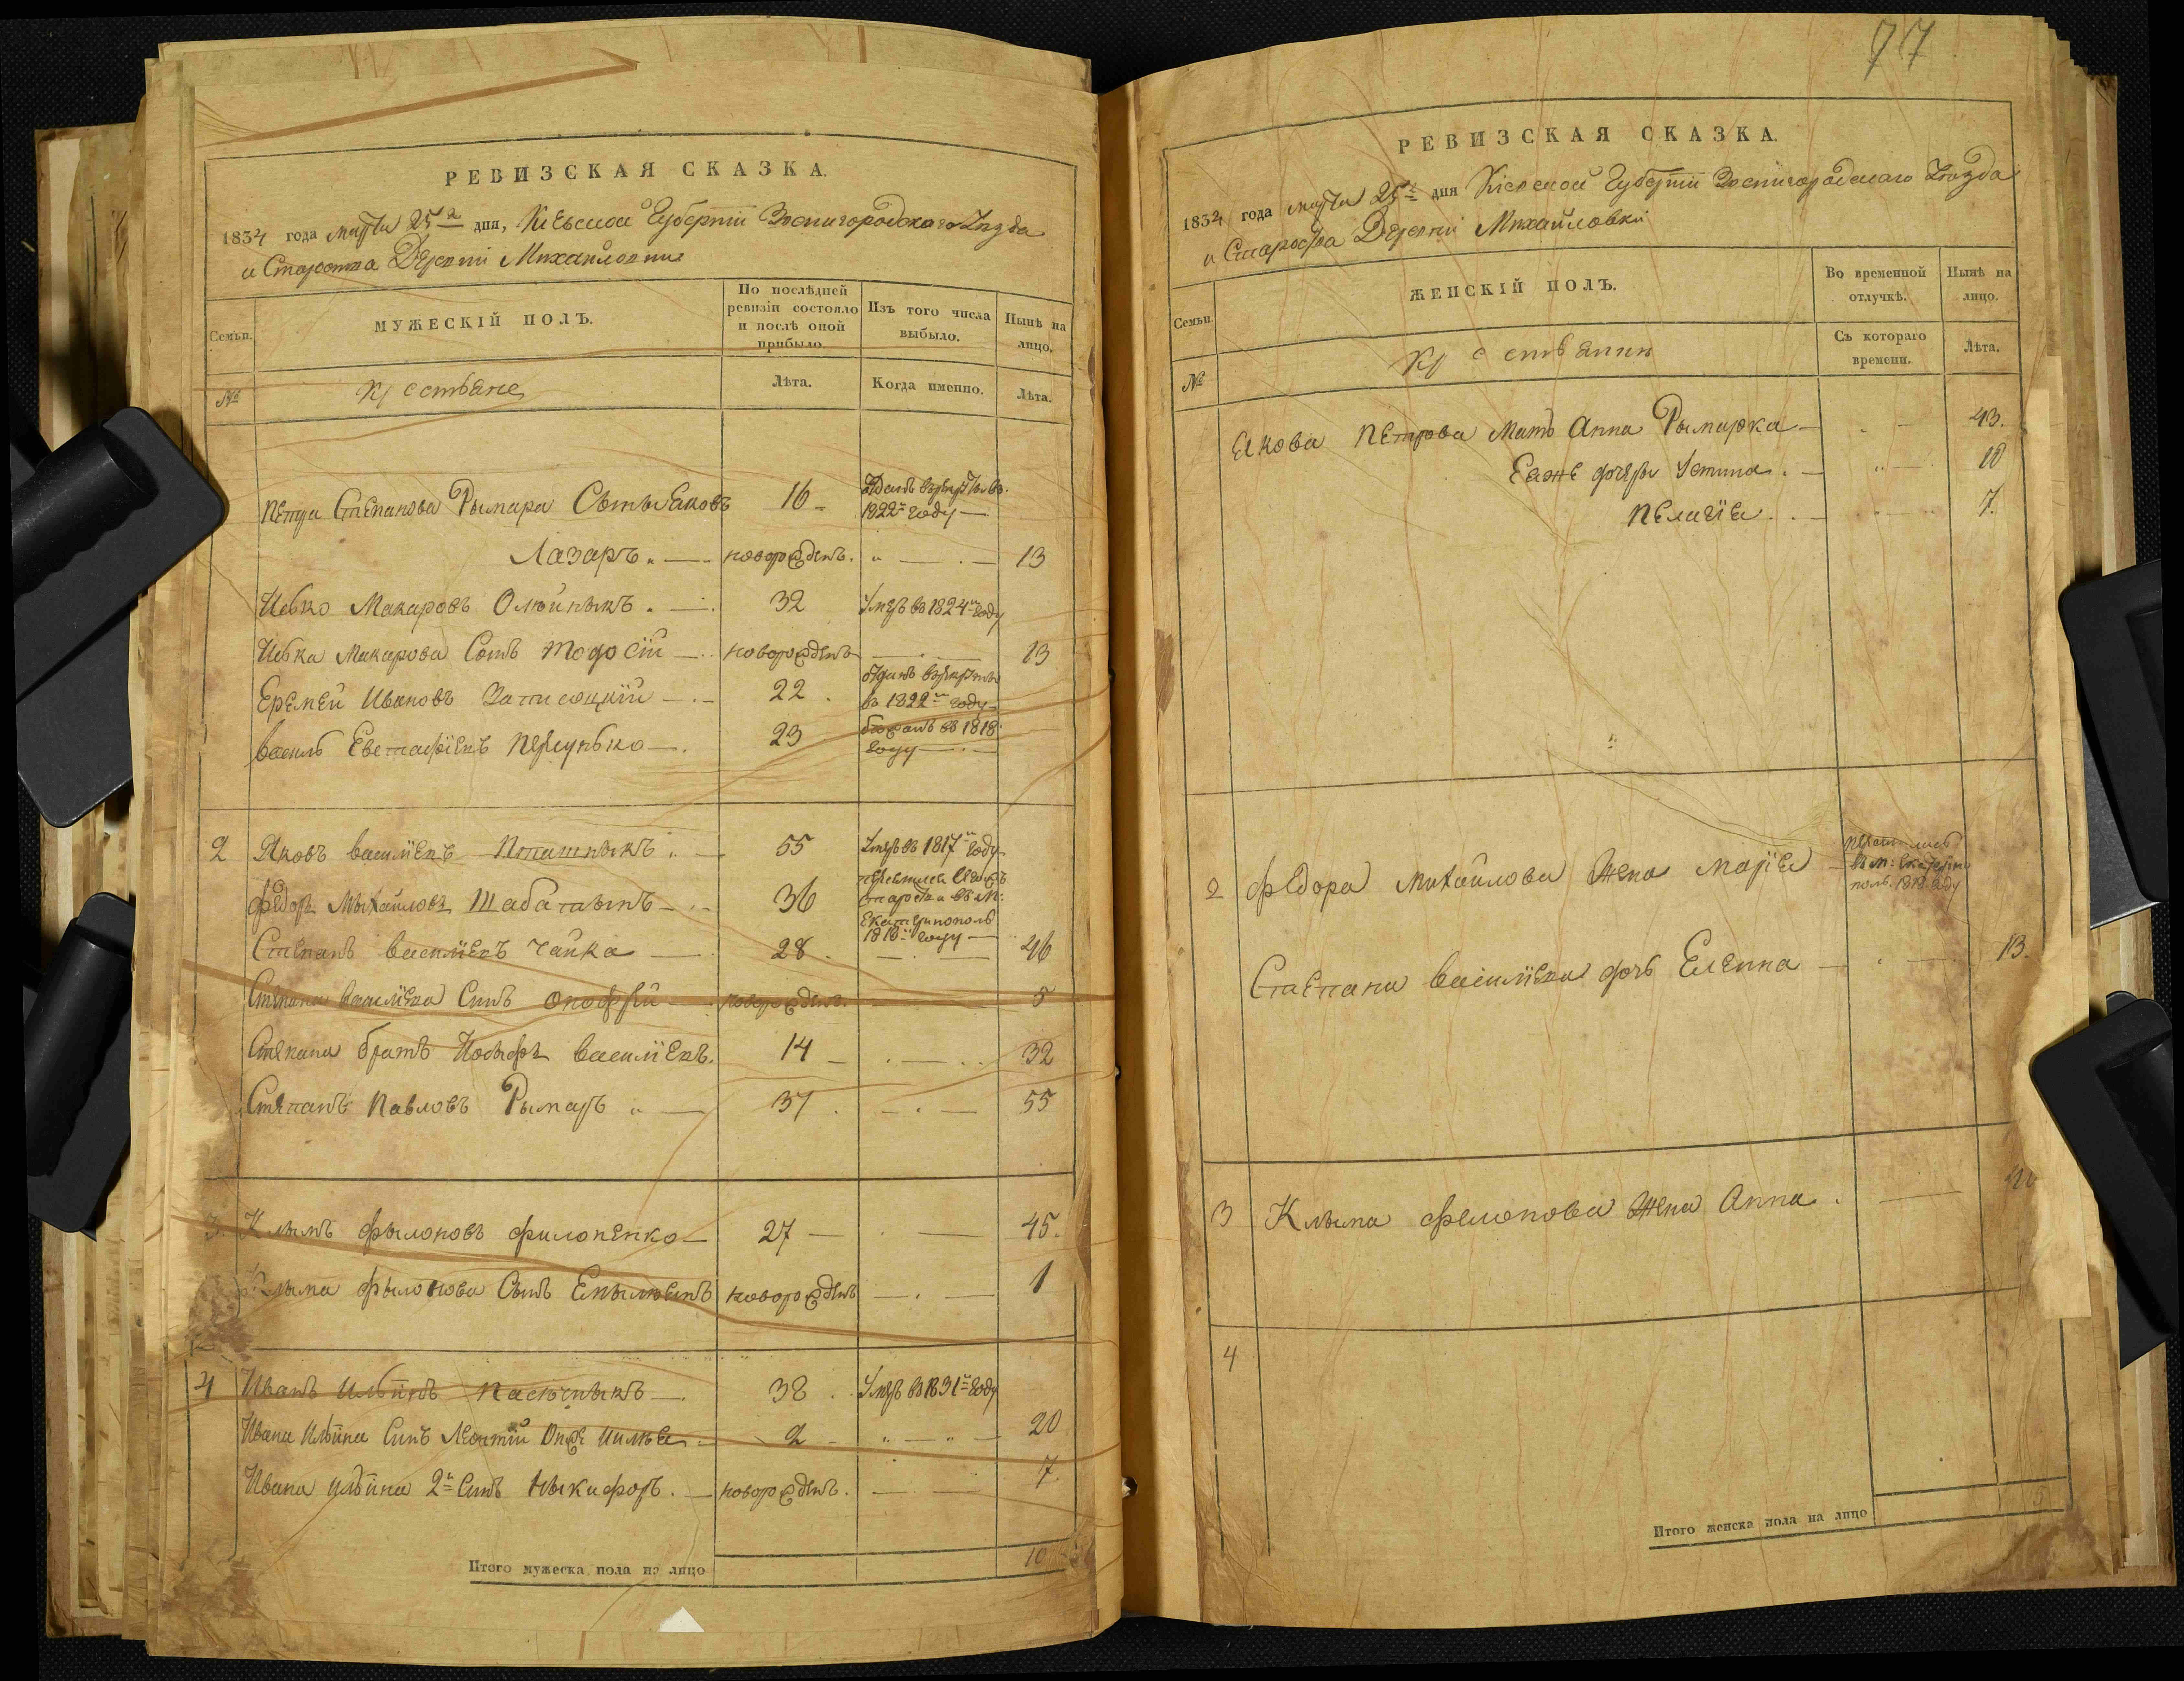 РЕВИЗСКАЯ СКАЗКА.
1834 года марта 25 дня, Кіевской Губерніи Звенигородскаго Уезда
и Староства Деревни Михайловки
Семьи.
МУЖЕСКІЙ ПОЛЪ.
По послѣдней ревизіи состояло и послѣ оной прибыло.
Изъ того числа выбыло.
Нынѣ на лицо.
№
Крестьяне
Лѣта.
Когда именно.
Лѣта.
Петра Степанова Рымара Сынъ Яковъ 16 въ рекруты въ 1822 году
Лазаръ новорожденъ. 13
Ивко Макаровъ Олюйныкъ 32 Умеръ въ 1824 году
Ивка Макарова Сынъ Тодосій новорожденъ 13
Еремей Ивановъ 22 въ рекруты въ 1822 году
Василь Евстафіевъ 23 въ 1818 году
2 Яковъ Василіевъ 55 Умеръ въ 1817 году
Федоръ Мыхайловъ Шабатынъ 36 староства въ м: Екатеринополь 1818 году
Степанъ Василіевъ Чайка 28 46
Степана Василіева Сынъ Онофрей новорожденъ. 5
Степана братъ Иосыфъ Василіевъ. 14 32
Степанъ Павловъ Рымаръ 37 55
3 Клымъ Фылоновъ Филоненко 27 45.
Клыма Фылонова Сынъ Емылыянъ новорожденъ 1
4 Иванъ Ильинъ Пасючныкъ 38 Умеръ въ 1831 году
Ивана Ильина Сынъ Леонтій Онже 2 20
Ивана Ильина 2й Сынъ Ныкифоръ. новорожденъ. 7.
Итого мужеска пола на лицо 10
77
РЕВИЗСКАЯ СКАЗКА.
1834 года марта 25 дня Кіевской Губерніи Звенигородскаго Уезда
и Староства Деревни Михайловки
Семьи.
ЖЕНСКІЙ ПОЛЪ.
Во временной отлучкѣ.
Нынѣ на лицо.
№
Крестьянки
Съ котораго времени.
Лѣта.
Якова Петрова Мать Анна Рымарка 43.
Еяже дочеры Устина. 10
Пелагія 7.
2 Федора Михайлова Жена Марія въ м: Екатеринополь 1818 году
Степана Василіева дочь Еленна 13.
3 Клыма Фелонова Жена Анна.
4
Итого женска пола на лицо 5